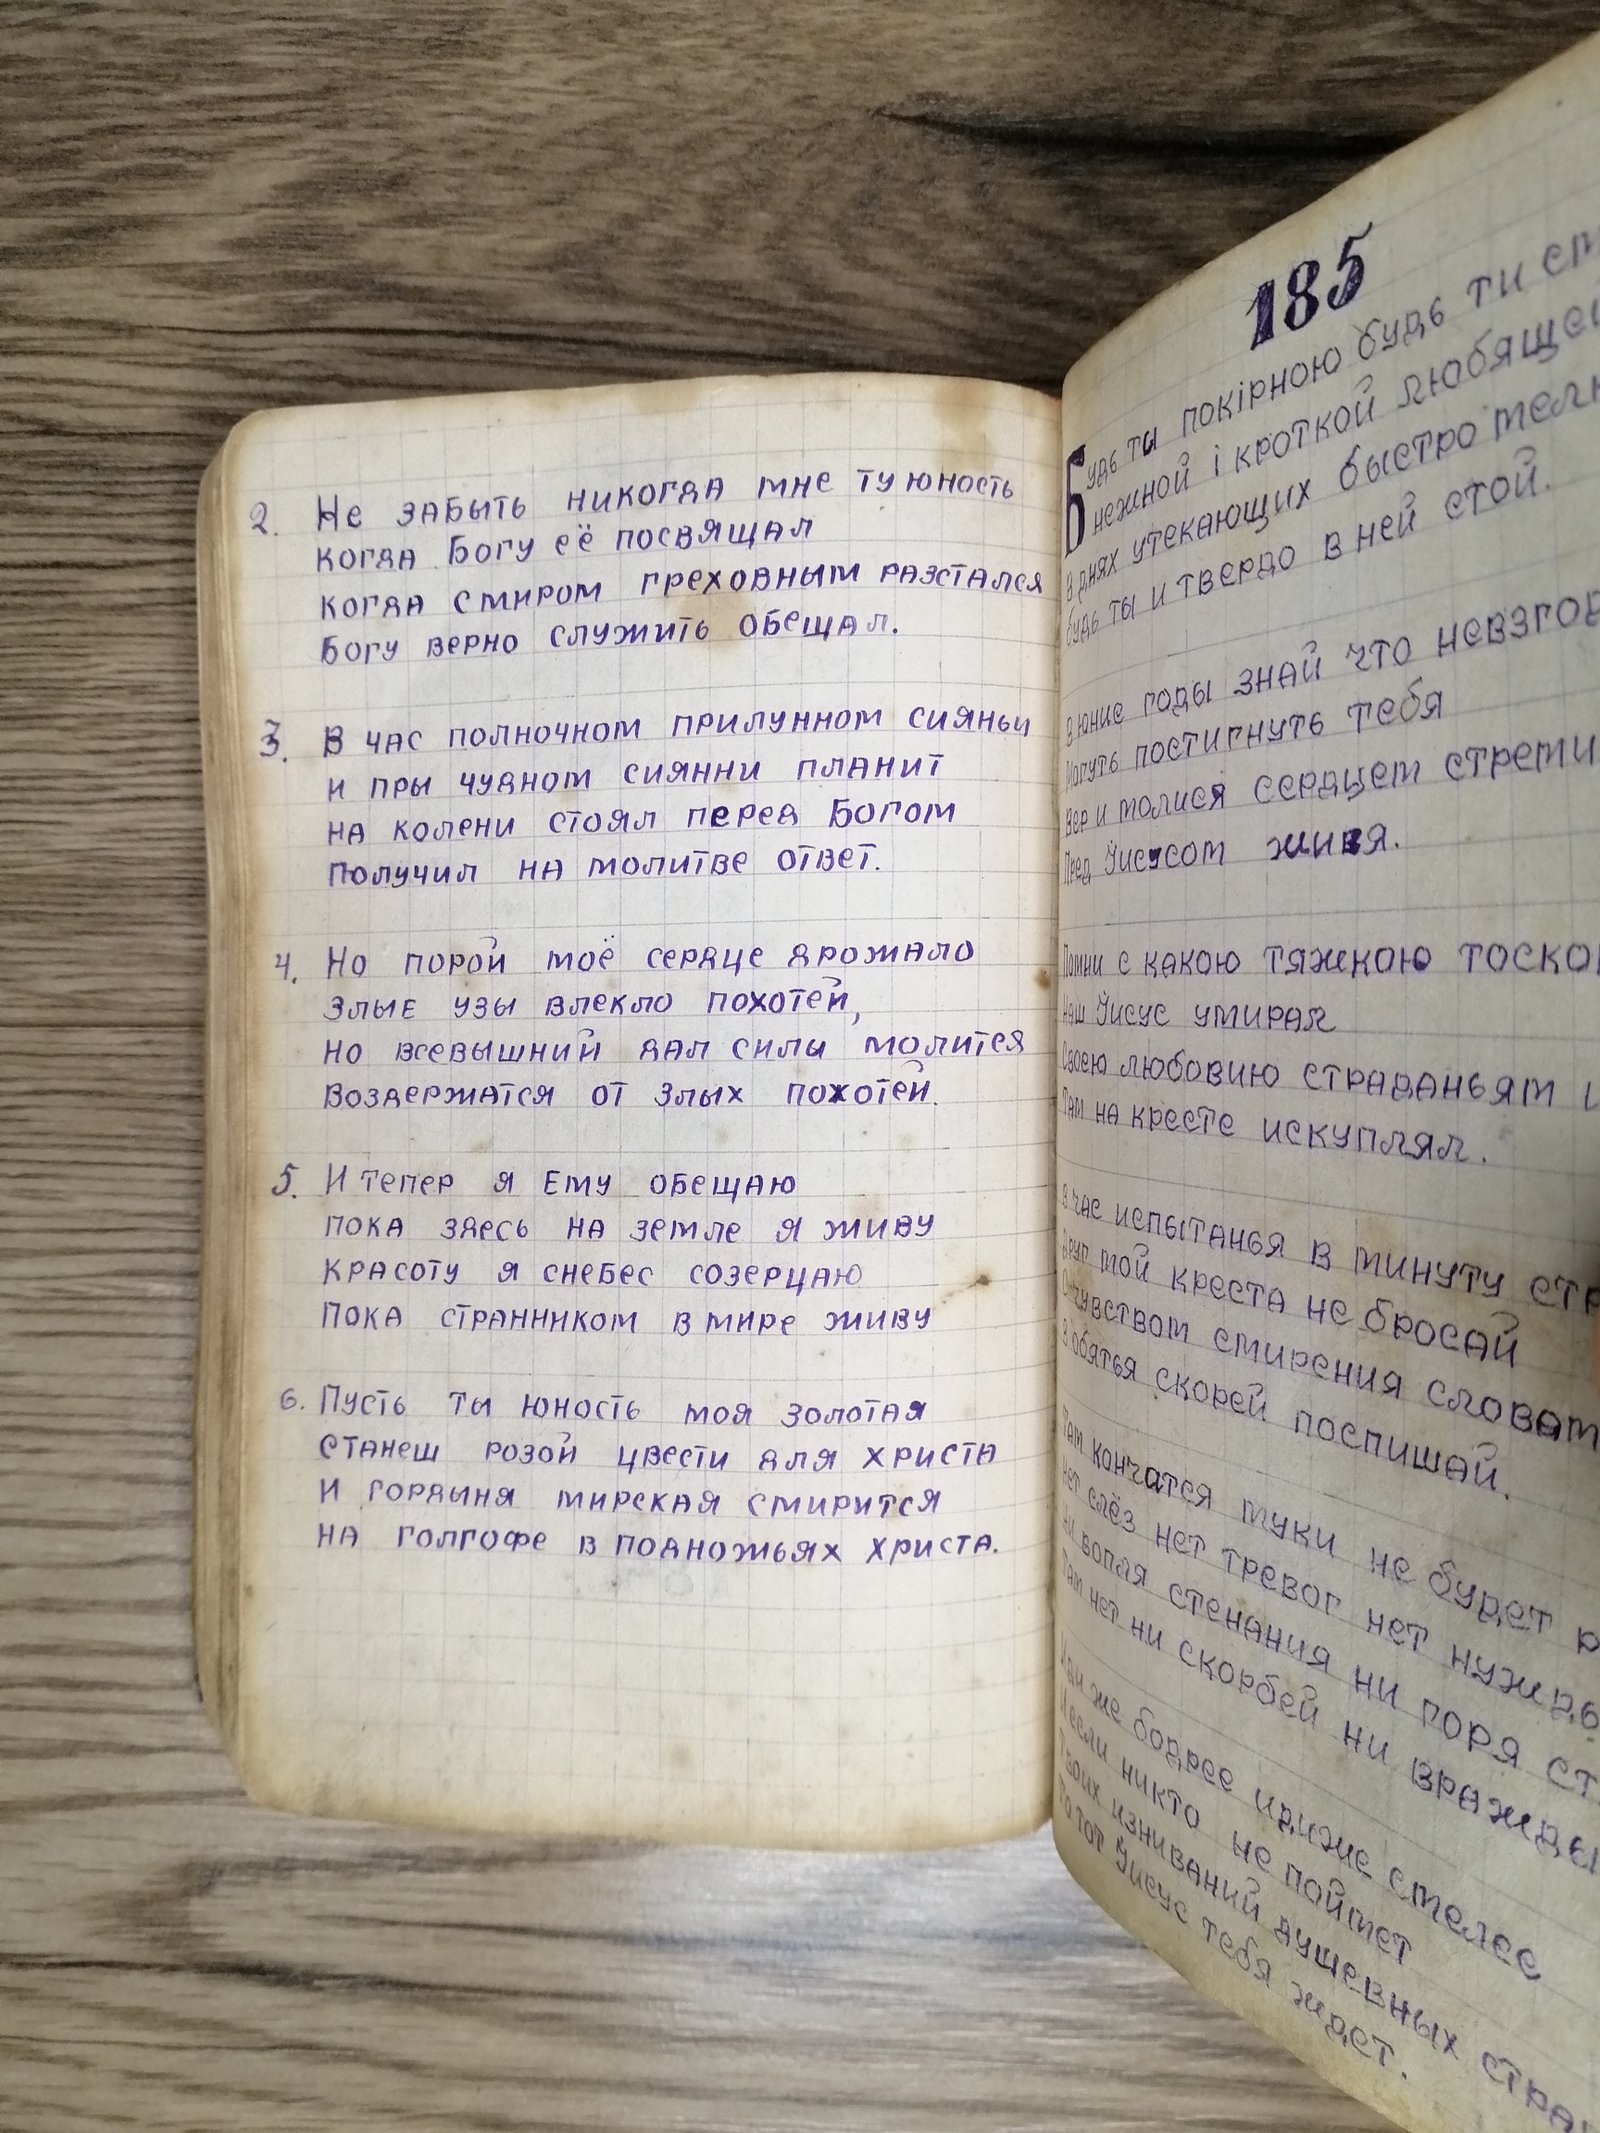 2. Не забыть никогда мне ту юность
когда Богу её посвящал
когда смиром греховным разстался
Богу верно служить обещал.
3. В час полночном прилунном сияньи
и пры чудном сиянни планит
на колени стоял перед Богом
Получил на молитве ответ.
4. Но порой моё сердце дрожало
злые узы влекло похотей,
но всевышний дал силы молится
воздержатся от злых похотей.
5. И тепер я Ему обещаю
пока здесь на земле я живу
красоту я снебес созерцаю
Пока странником в мире живу
6. Пусть ты юность моя золотая
станеш розой цвести для христа
и гордыня мирская смирится
на голгофе в подножьях христа.
185
Будь ты покірною будь ти
нежной і кроткой любящей
в днях утекающих быстро
будь ты и твердо в ней стой.
в юние годы знай что
Могуть постигнуть тебя
вер и молися сердцем
Пред Иисусом живя.
Помни с какою тяжкою
наш Иисус умирал
Своею любовию страданьям
там на кресте искуплял.
в час испытанья в минуту
друг мой креста не бросай
С чувством смирения
в обятья скорей поспишай.
там кончатся муки не будет
нет слёз нет тревог нет
ни вопля стенания ни горя
там нет ни скорбей ни вражды
Иди же бодрее идиже смелее
И если никто не поймет
твоих изниваний душевных
То тот Иисус тебя ждет.